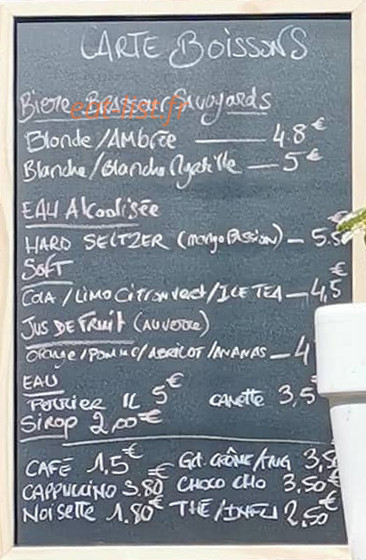 CARTE BOISSONS
Biere Brasseurs Savoyards
eat-list.fr
Blonde/Ambrée — 4.8€
Blanche/Blanche Myrtille — 5€
EAU Alcoolisée
HARD SELTZER (mango Passion) — 5.5
SOFT
COLA/LIMO Citron vert/ICE TEA — 4,5€
JUS DE Fruit (AU VERRE)
Orange/POMME/ABRICOT/ANANAS — 4
EAU
Perrier 1L 5€ CANETTE 3,5
Sirop 2,00€
CAFÉ 1,5€ Gd. CRÈME/ 3,5
CAPPUCCINO 3.80€ CHOCO CHO 3,50€
Noisette 1.80€ THÉ/INFU 2,50€